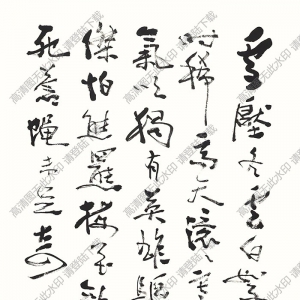 雪壓冬雲白絮
時稀高天滚寒
氣吹獨有英雄驅
傑怕熊羆梅花歡
死蒼蠅未足奇